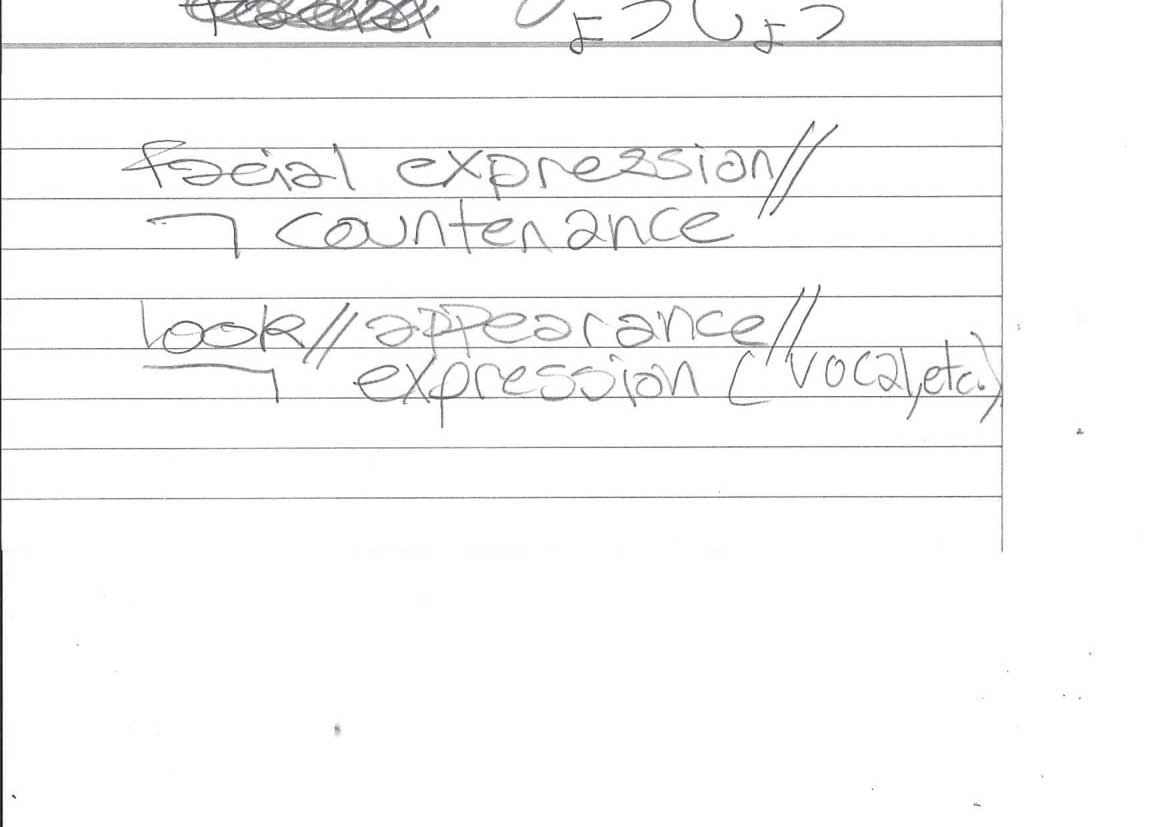 ょうしょう
facial expression//
ㄱ countenance
look// appearance//
ㄱ expression (vocal, etc.)